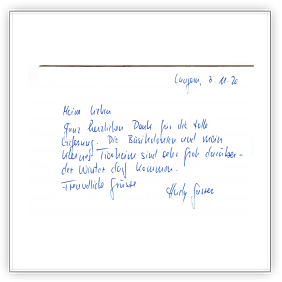 Lungern, 3.11.20
Meine Lieben
Ganz herzlichen Dank für die tolle
Lieferung. Die Büsikolonien und mein
kleines Tierheim sind sehr froh darüber -
der Winter darf kommen.
Freundliche Grüsse